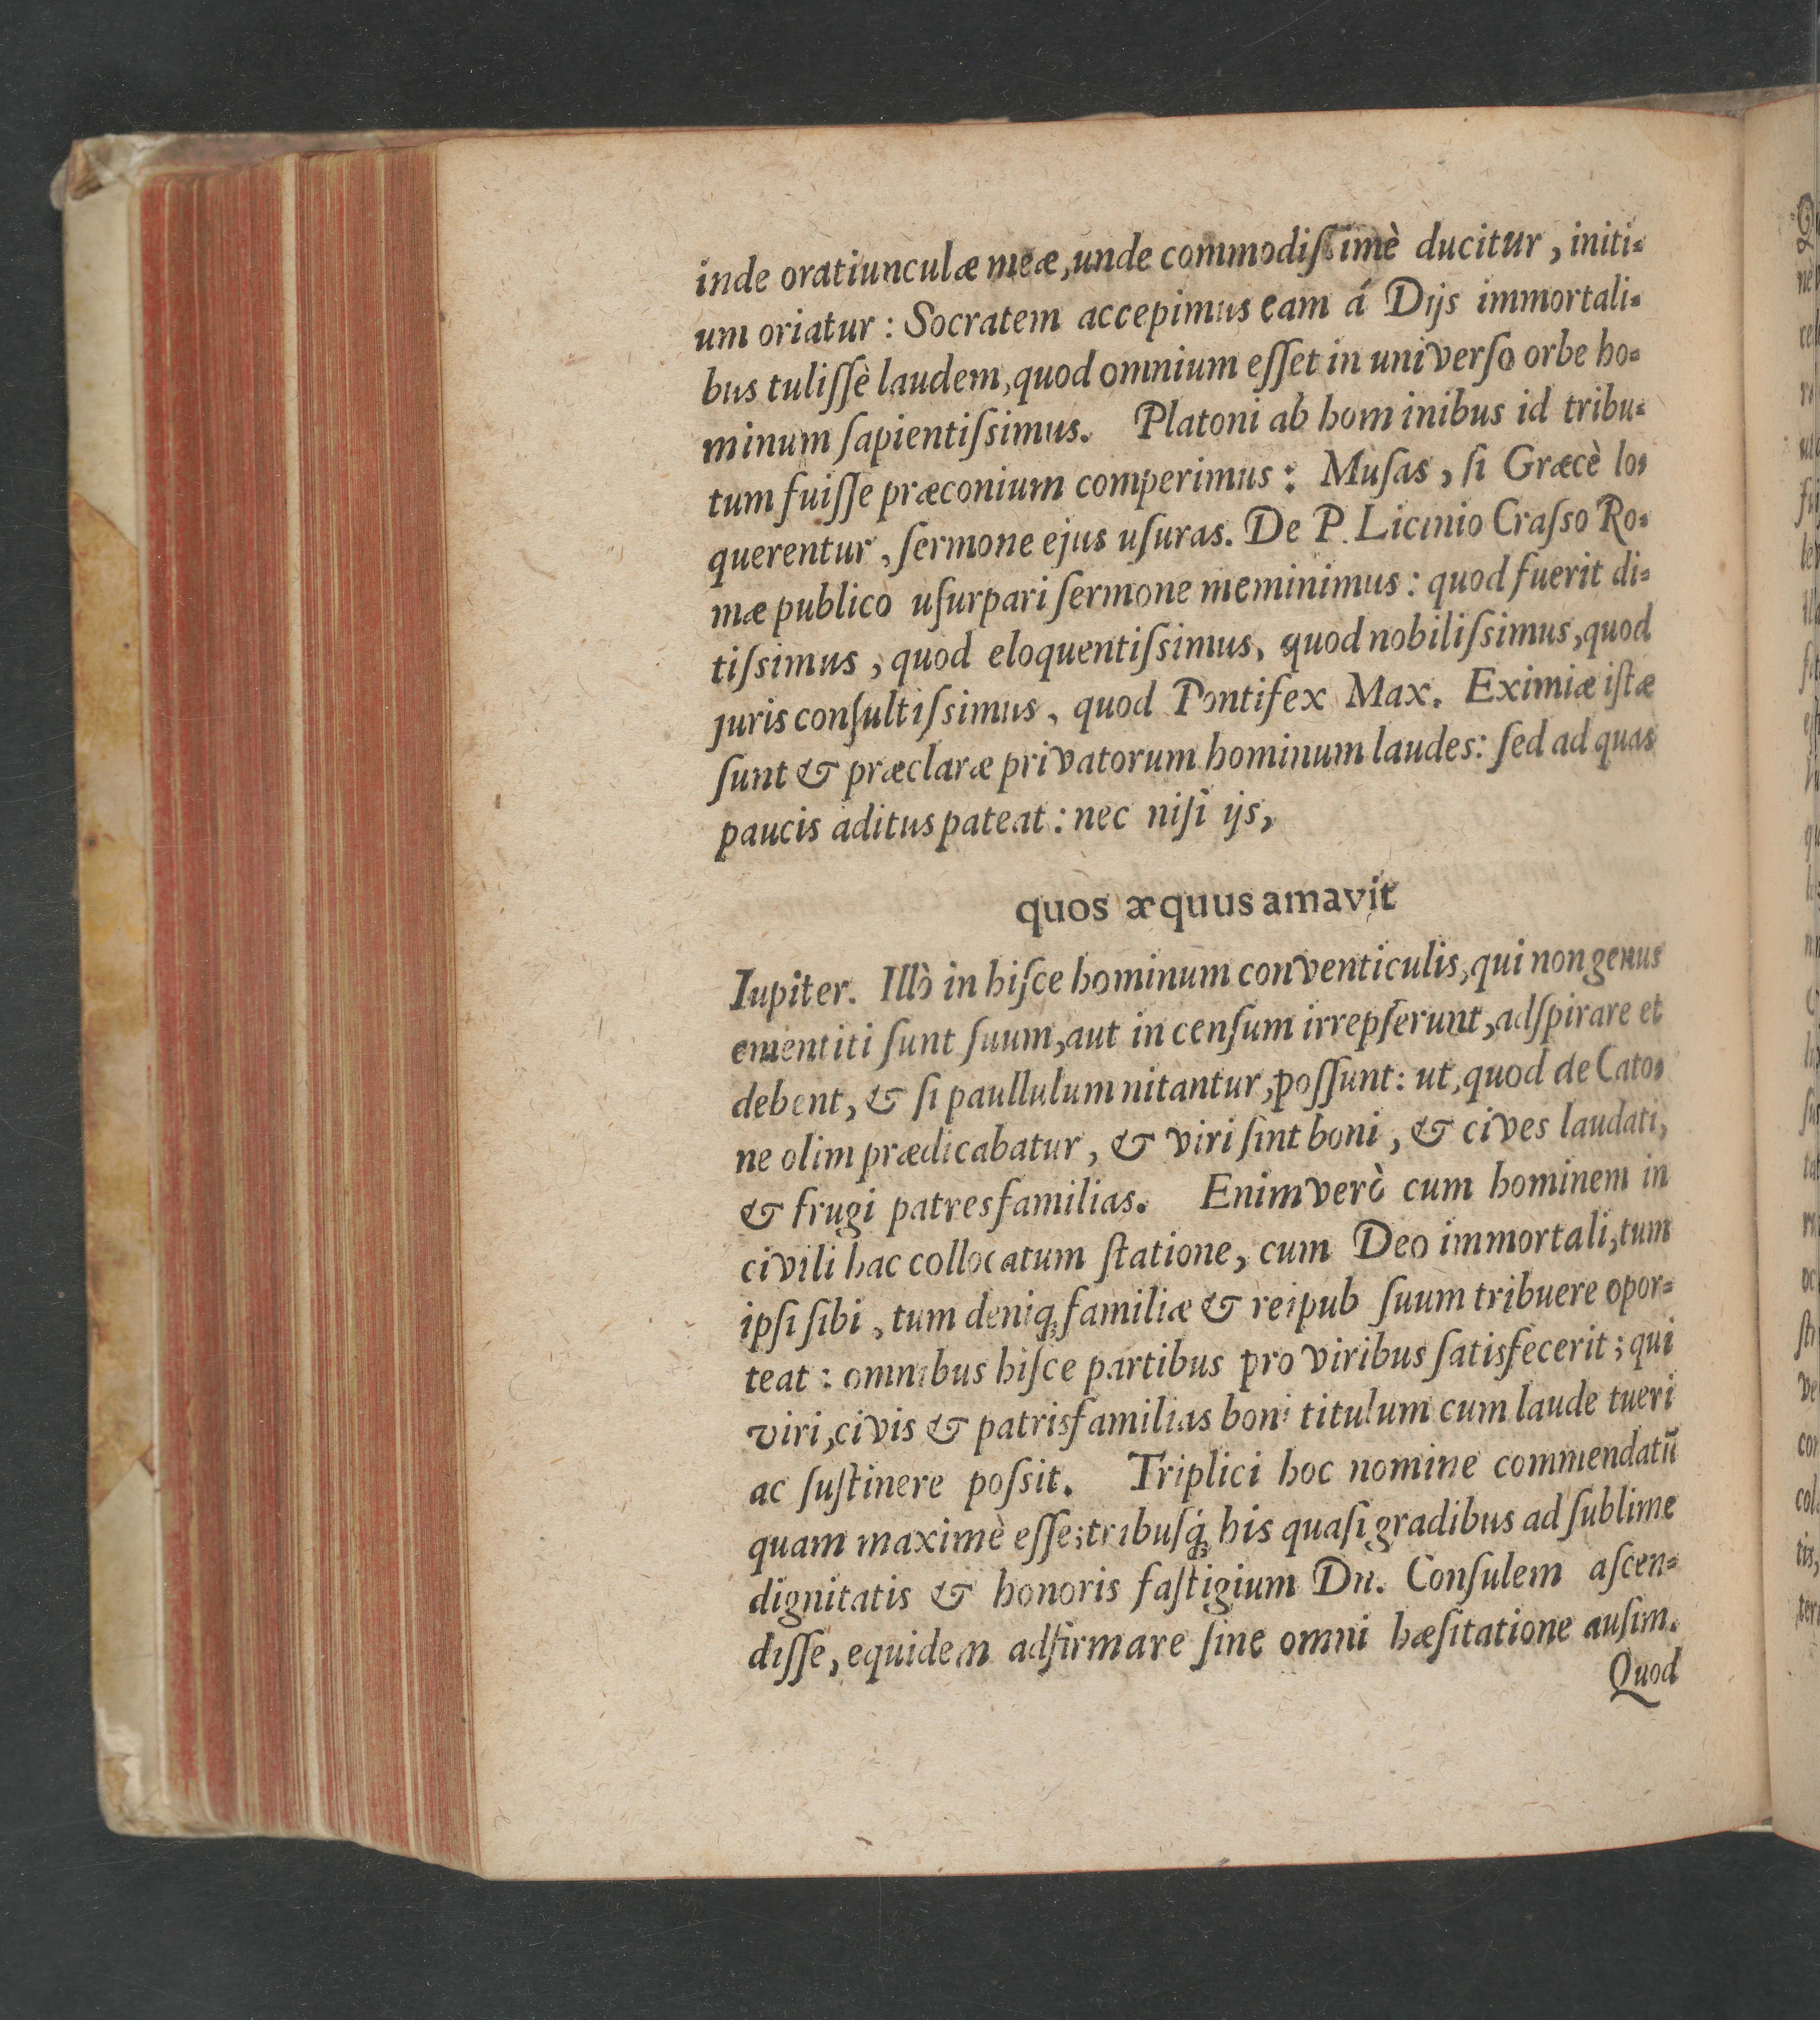 inde oratiunculæ meæ, unde commodiſsimè ducitur, initi-
um oriatur: Socratem accepimus eam á Dijs immortali-
bus tuliſſè laudem, quod omnium eſſet in univerſo orbe ho-
minum ſapientiſsimus. Platoni ab hominibus id tribu-
tum fuiſſe præconium comperimus: Muſas, ſi Græcè lo-
querentur, ſermone ejus uſuras. De P. Licinio Craſso Ro-
mæ publico uſurpari ſermone meminimus: quod fuerit di-
tiſsimus, quod eloquentiſsimus, quod nobiliſsimus, quod
juris conſultiſsimus, quod Pontifex Max. Eximiæ iſtæ
ſunt & præclaræ privatorum hominum laudes: ſed ad quas
paucis aditus pateat: nec niſi ijs,
quos æquus amavit
Iupiter. Illò in hiſce hominum conventiculis, qui non genus
ementiti ſunt ſuum, aut in cenſum irrepſerunt, adſpirare et
debent, & ſi paullulum nitantur, poſſunt: ut, quod de Cato-
ne olim prædicabatur, & viri ſint boni, & cives laudati,
& frugi patresfamilias. Enimverò cum hominem in
civili hac collocatum ſtatione, cum Deo immortali, tum
ipſi ſibi, tum deniq; familiæ & reipub ſuum tribuere opor-
teat: omnibus hiſce partibus pro viribus ſatisfecerit; qui
viri, civis & patrisfamilias boni titulum cum laude tueri
ac ſuſtinere poſsit. Triplici hoc nomine commendatū
quam maximè eſſe; tribuſq́; his quaſi gradibus ad ſublime
dignitatis & honoris faſtigium Dn. Conſulem aſcen-
diſſe, equidem adfirmare ſine omni hæſitatione auſim.
Quod